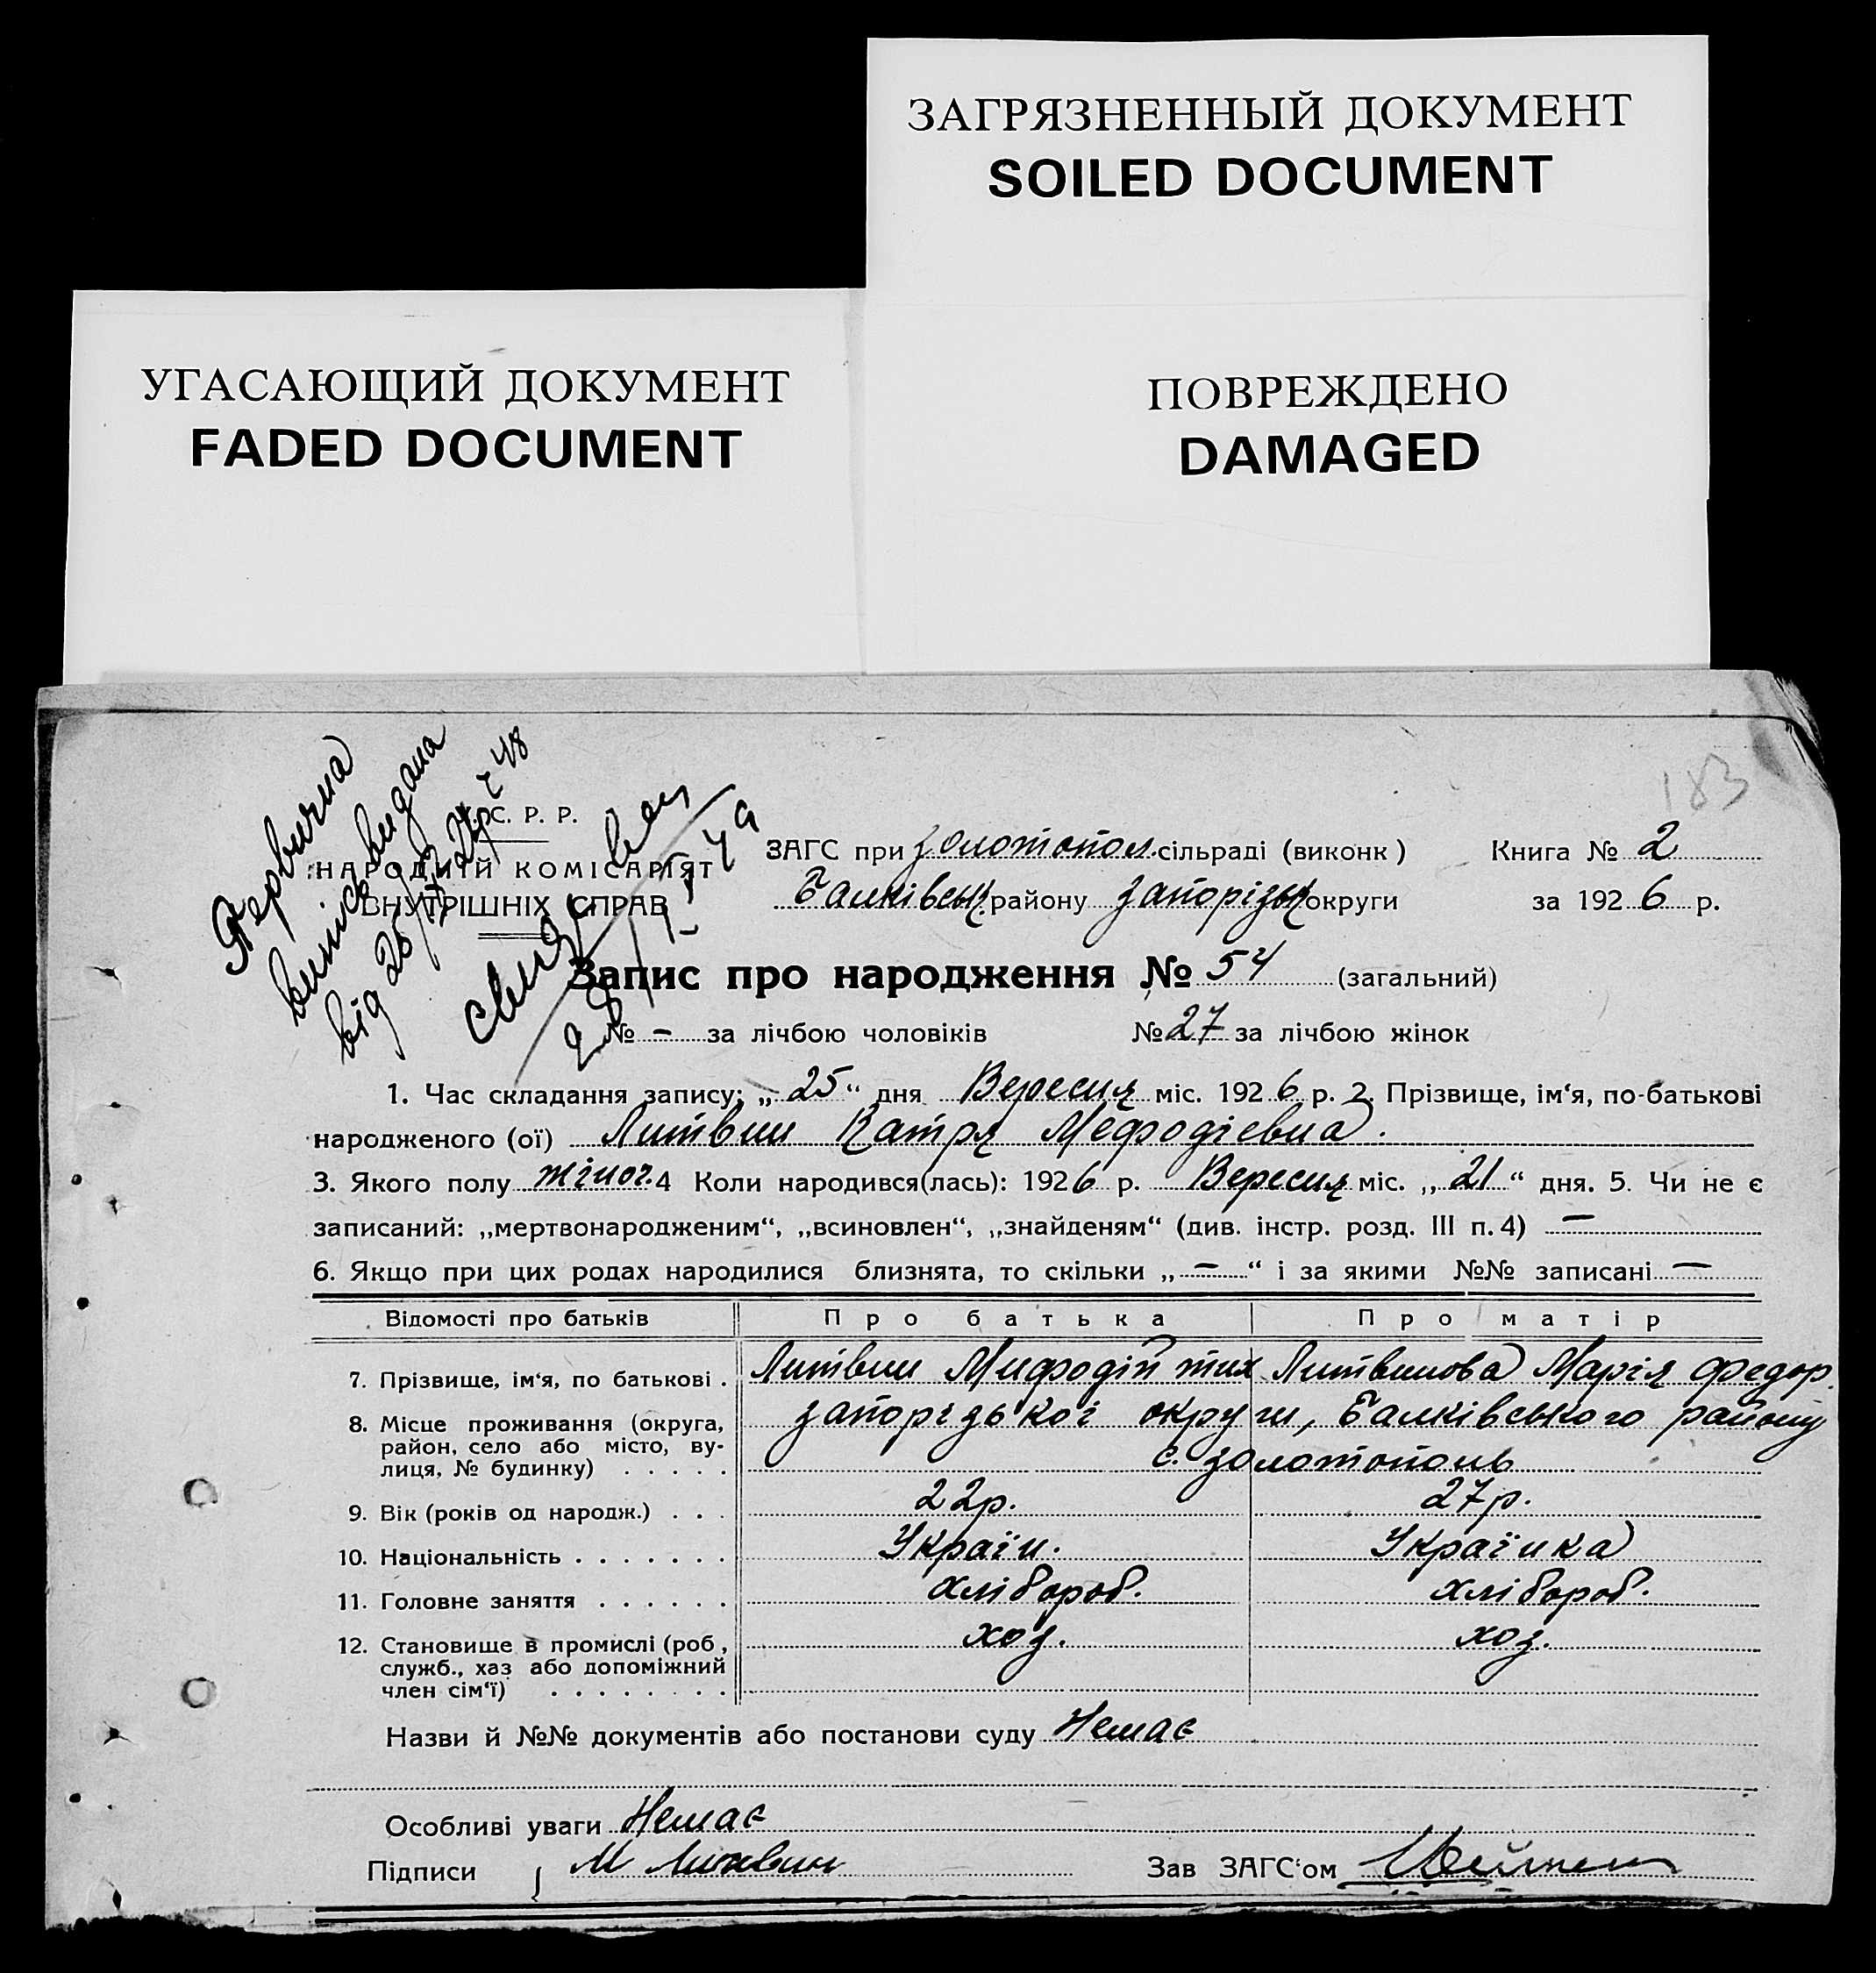 ЗАГРЯЗНЕННЫЙ ДОКУМЕНТ
SOILED DOCUMENT
УГАСАЮЩИЙ ДОКУМЕНТ
FADED DOCUMENT
ПОВРЕЖДЕНО
DAMAGED
183
Первична
виписка видана
від 26/
У. С. Р. Р.
НАРОДНІЙ КОМІСАРІЯТ
ВНУТРІШНІХ СПРАВ
ЗАГС при Золотопол. сільраді (виконк) Книга № 2
Балківськ. району Запорізьк округи за 1926 р.
Запис про народження № 54 (загальний)
№ – за лічбою чоловіків № 27 за лічбою жінок
1. Час складання запису: „25“ дня Вересня міс. 1926 р. 2. Прізвище, ім‘я, по-батькові
народженого (ої) Литвин Катря Мефодіевна.
3. Якого полу жіноч. 4 Коли народився(лась): 1926 р. Вересня міс. „21“ дня. 5. Чи не є
записаний: „мертвонародженим“, „всиновлен“, „знайденям“ (див. інстр. розд. III п. 4) –
6. Якщо при цих родах народилися близнята, то скільки „–“ і за якими №№ записані –
Відомості про батьків Про батька Про матір
7. Прізвище, ім‘я, по батькові . Литвин Мифодій тих Литвинова Марія Федор.
8. Місце проживання (округа, Запорізької округи, Балківського району
район, село або місто, ву-
лиця, № будинку) . . . . . с. Золотополь
9. Вік (років од народж.) . . . 22р. 27р.
10. Національність . . . . . . . Україн. Українка
11. Головне заняття . . . . . . хлібороб. хлібороб.
12. Становище в промислі (роб, хоз. хоз.
служб., хаз або допоміжний
член сім‘ї) . . . . . . . .
Назви й №№ документів або постанови суду Немає
Особливі уваги Немає
Підписи М Литвин Зав ЗАГС‘ом